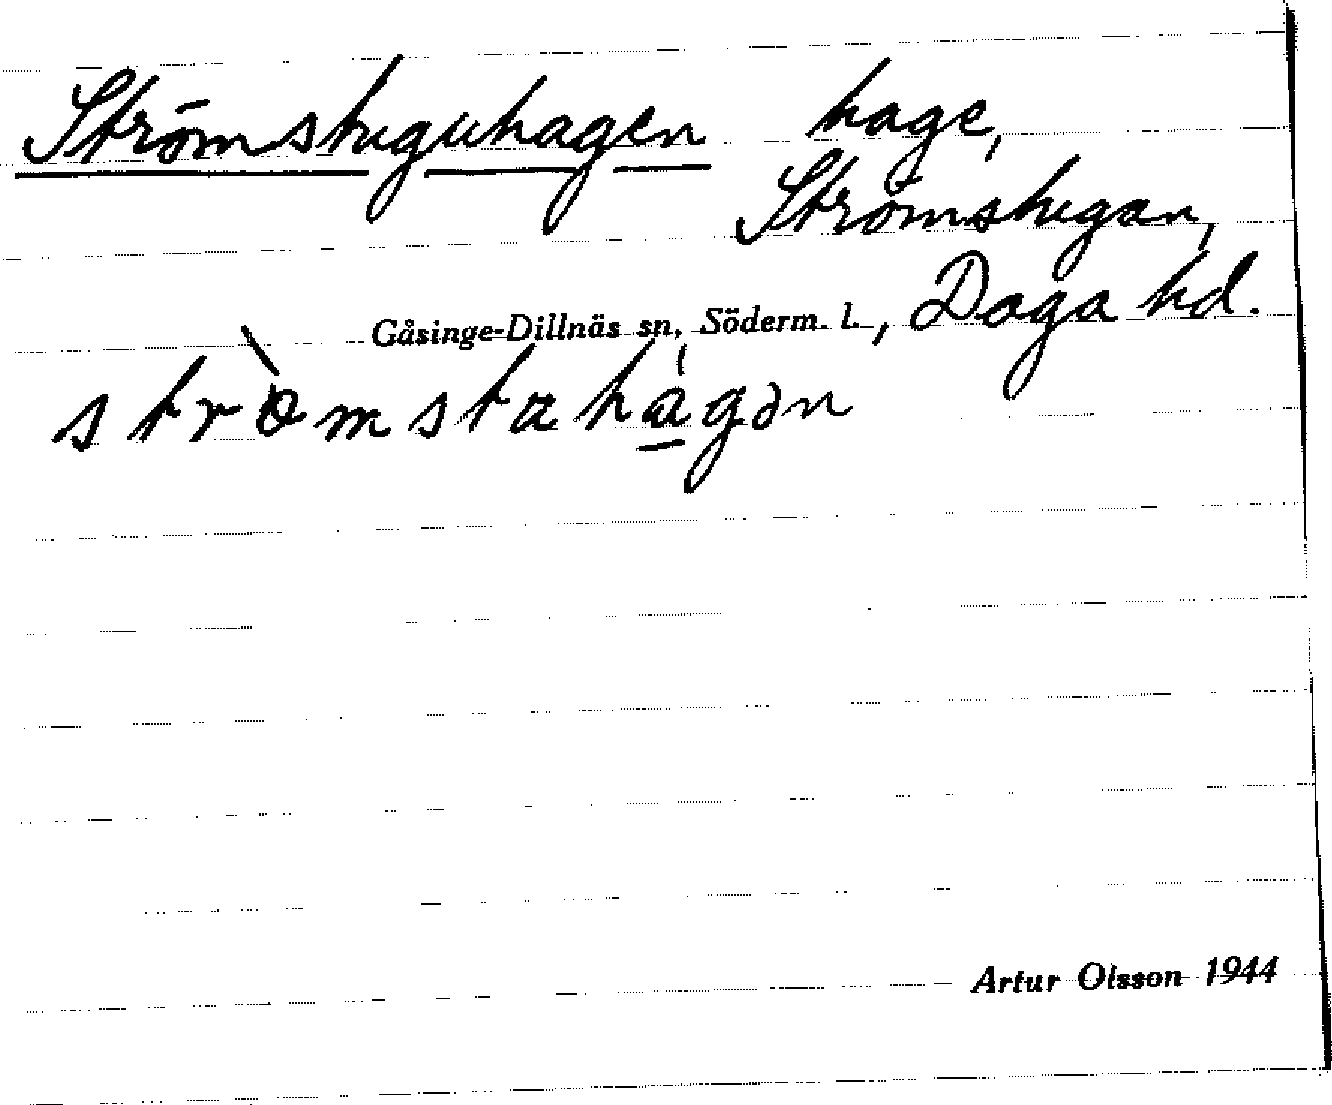 Strömstuguhagen hage,
Strömstugan,
Gåsinge-Dillnäs sn, Söderm. l., Daga hd.
strö̀mstahá̱gən
Artur Olsson 1944